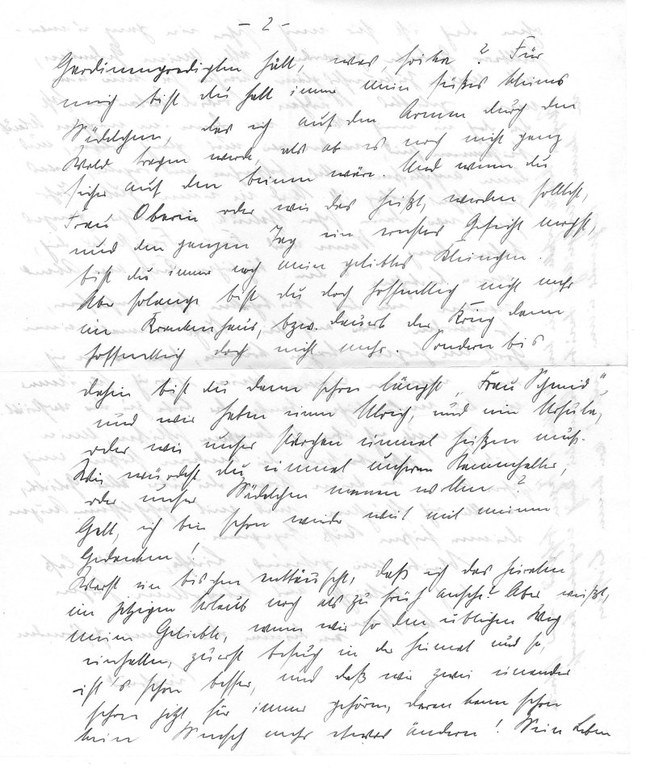 - 2 -
Gardinenpredigten hält, was soika? Für
mich bist du halt immer mein süßes kleines
Mädelchen, das ich auf den Armen durch den
Wald tragen werde, als ob es noch nicht ganz
sicher auf den Beinen wäre. Und wenn du
Frau Oberin oder wie das heißt, werden solltest,
und den ganzen Tag ein ernstes Gesicht machst,
bist du immer noch mein geliebtes Kleinchen.
Aber solange bist du doch hoffentlich nicht mehr
im Krankenhaus, bzw. dauert der Krieg dann
hoffentlich doch nicht mehr. Sondern bis
dahin bist du dann schon längst „Frau Schmid"
und wir haben einen Ulrich, und eine Ursula,
oder wie unser Pärchen einmal heißen muß.
Wie würdest du einmal unseren Stammhalter,
oder unser Mädelchen nennen wollen?
Gelt, ich bin schon wieder weit mit meinen
Gedanken!
Warst ein bischen enttäuscht, daß ich das heiraten
im jetzigen Urlaub noch als zu früh ansehe? Aber weißt,
meine Geliebte, wenn wir so den üblichen Weg
einhalten, zuerst Besuch in der Heimat und so,
ist's schon besser, und daß wir zwei einander
schon jetzt für immer gehören, daran kann schon
kein Mensch mehr etwas ändern! Mein Leben